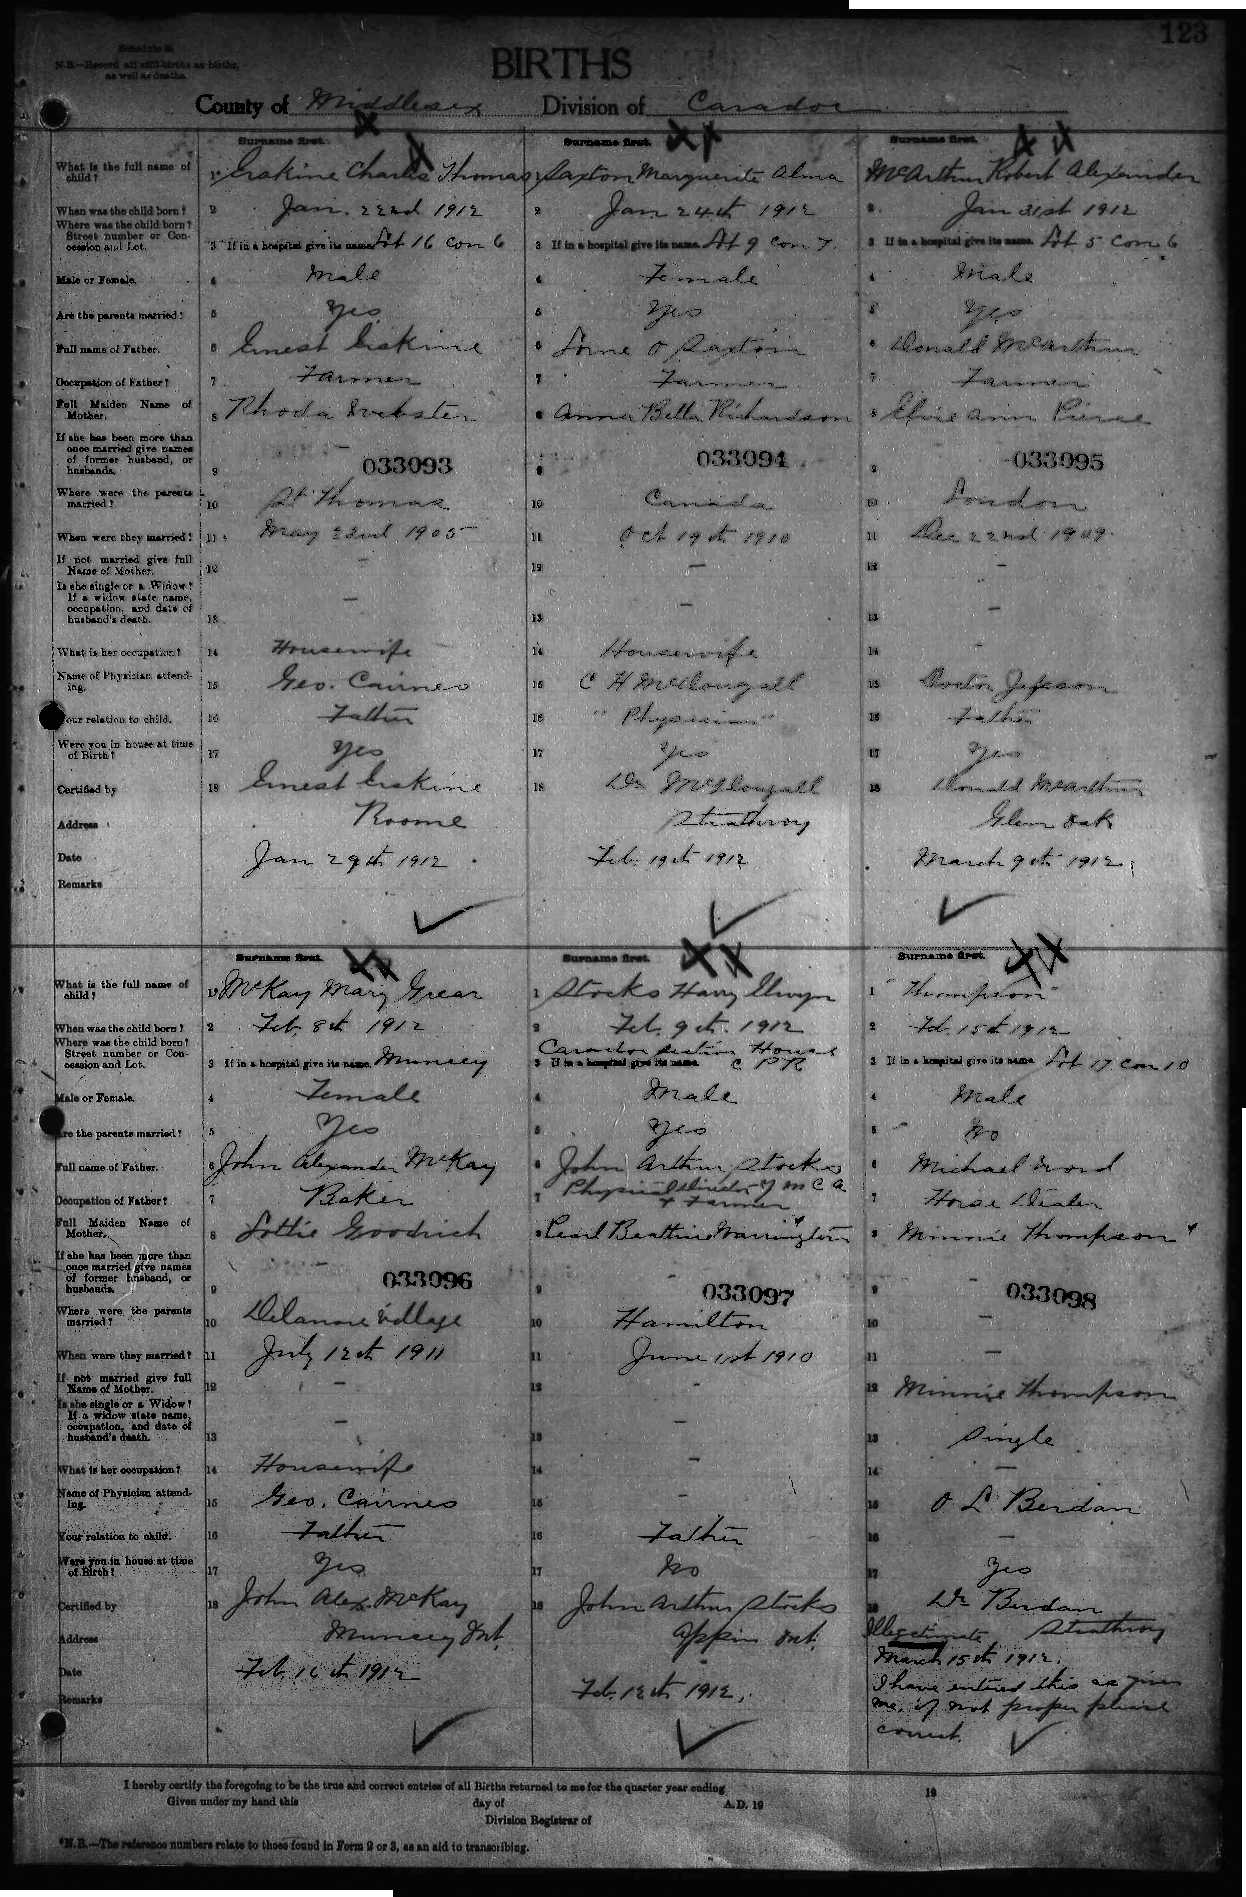 123
Schedule A
N.B.—Record all still-births as births,
as well as deaths.
BIRTHS
County of Middlesex Division of Caradoc
Surname first. Surname first. Surname first.
What is the full name of
child?
1 Erskine Charles Thomas 1 Saxton Marguerite Alma McArthur Robert Alexander
When was the child born? 2 Jan. 22nd 1912 2 Jan 24th 1912 2 Jan 31st 1912
Where was the child born?
Street number or Con-
cession and Lot.
3 If in a hospital give its name. Lot 16 con 6 3 If in a hospital give its name. Lot 9 con 7 3 If in a hospital give its name. Lot 5 con 6
Male or Female. 4 Male 4 Female 4 Male
Are the parents married? 5 Yes 5 Yes 5 Yes
Full name of Father. 6 Ernest Erskine 6 Lorne O Saxton 6 Donald McArthur
Occupation of Father? 7 Farmer 7 Farmer 7 Farmer
Full Maiden Name of
Mother.
8 Rhoda Webster 8 Anna Bella Richardson 8 Elsie Ann Pierce
If she has been more than
once married give names
of former husband, or
husbands.
9 033093 9 033094 9 033095
Where were the parents
married?
10 St Thomas 10 Canada 10 London
When were they married? 11 May 22nd 1905 11 Oct 19th 1910 11 Dec 22nd 1909
If not married give full
Name of Mother.
12 – 12 – 12 –
Is she single or a Widow?
If a widow state name,
occupation, and date of
husband's death.
13 – 13 – 13 –
What is her occupation? 14 Housewife 14 Housewife 14 -
Name of Physician attend-
ing.
15 Geo. Cairnes 15 C H McDougall 15 Doctor Jepson
Your relation to child. 16 Father 16 "Physician" 16 Father
Were you in house at time
of Birth?
17 Yes 17 Yes 17 Yes
Certified by 18 Ernest Erskine 18 Dr McDougall 18 Donald McArthur
Address Roome Strathroy Glen Oak
Date Jan 29th 1912 Feb. 19th 1912 March 9th 1912
Remarks
Surname first. Surname first. Surname first.
What is the full name of
child?
1 McKay Mary Grear 1 Stocks Harry Elwyn 1 "Thompson"
When was the child born? 2 Feb. 8th 1912 2 Feb. 9th. 1912 2 Feb. 15th 1912
Where was the child born?
Street number or Con-
cession and Lot.
Caradoc Section House
3 If in a hospital give its name. Muncey 3 If in a hospital give its name. C P R 3 If in a hospital give its name. Lot 17 con 10
Male or Female. 4 Female 4 Male 4 Male
Are the parents married? 5 Yes 5 Yes 5 No
Full name of Father. 6 John Alexander McKay 6 John Arthur Stocks 6 Michael Ward
Occupation of Father? 7 Baker 7 Physical Director Y M C A
+ Farmer 7 Horse Dealer
Full Maiden Name of
Mother.
8 Lottie Goodrich 8 Pearl Beattrice Warrington 8 Minnie Thompson
If she has been more than
once married give names
of former husband, or
husbands.
9 033096 9 033097 9 033098
Where were the parents
married?
10 Delaware Village 10 Hamilton 10 –
When were they married? 11 July 12th 1911 11 June 1st 1910 11 –
If not married give full
Name of Mother.
12 – 12 - 12 Minnie Thompson
Is she single or a Widow?
If a widow state name,
occupation, and date of
husband's death.
13 – 13 – 13 Single
What is her occupation? 14 Housewife 14 – 14 –
Name of Physician attend-
ing.
15 Geo. Cairnes 15 – 15 O L Berdan
Your relation to child. 16 Father 16 Father 16 –
Were you in house at time
of Birth?
17 Yes 17 No 17 Yes
Certified by 18 John Alex. McKay 18 John Arthur Stocks 18 Dr Berdan
Address Muncey Ont. Appin Ont. Illegetimate Strathroy
Date Feb. 16th 1912 Feb. 12th 1912. March 15th 1912.
Remarks I have entered this as given
me, if not proper please
correct.
I hereby certify the foregoing to be the true and correct entries of all Births returned to me for the quarter year ending 19
Given under my hand this day of A.D. 19
Division Registrar of
*N.B.—The reference numbers relate to those found in Form 2 or 3, as an aid to transcribing.